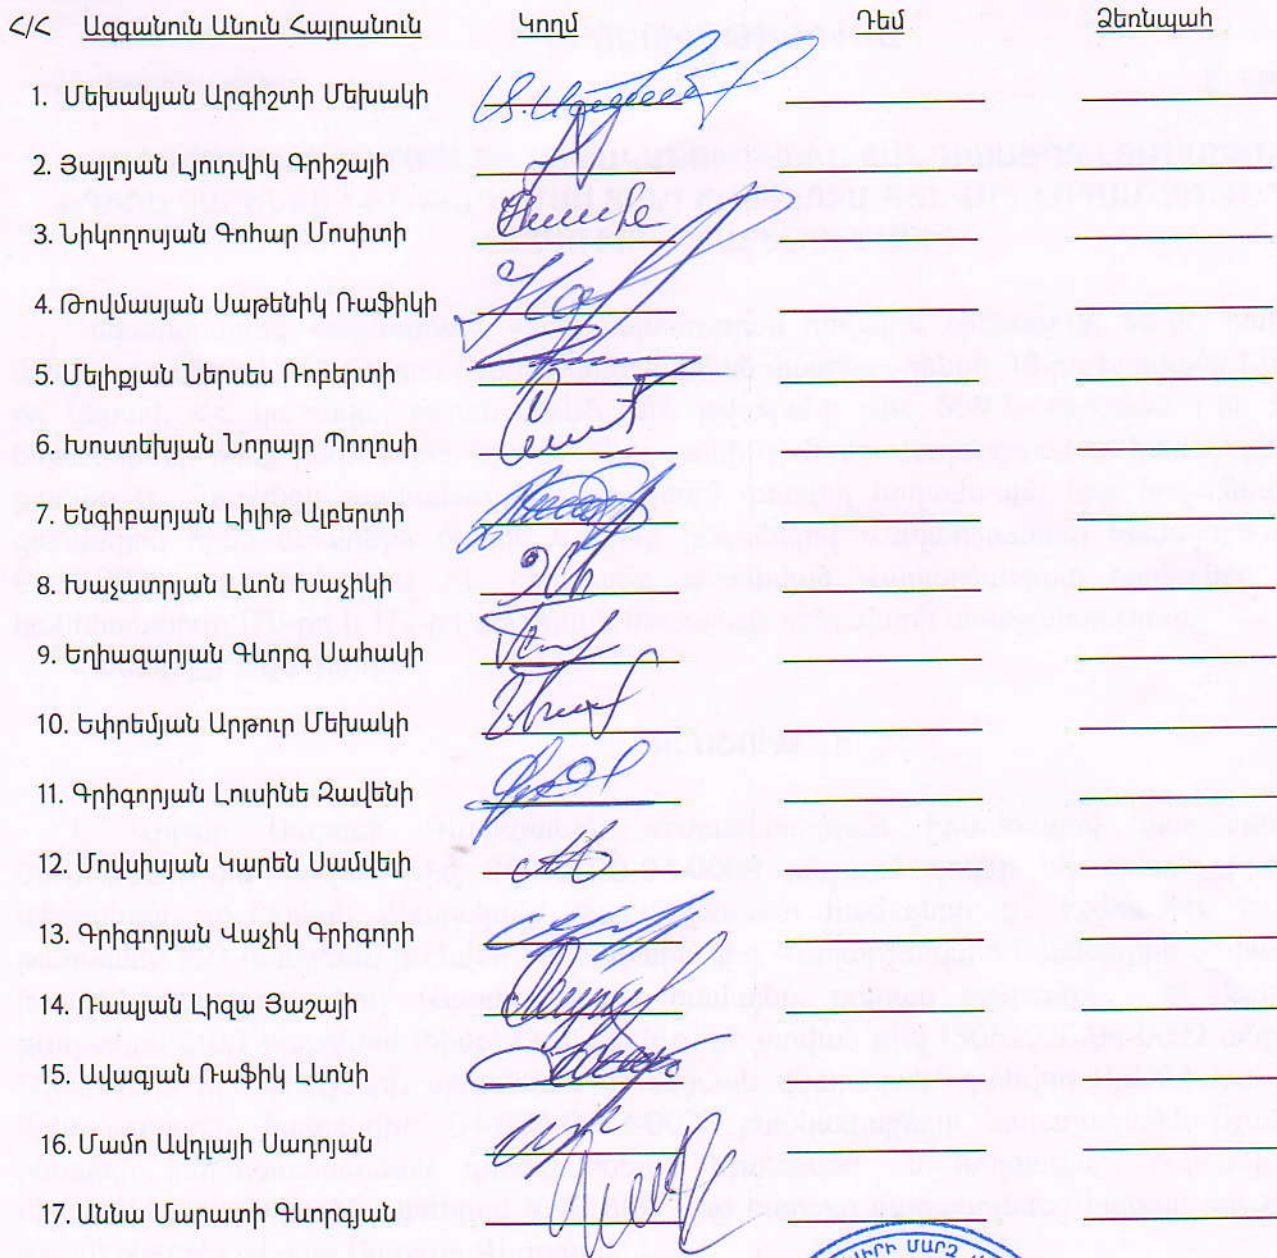 Հ/Հ Ազգանուն Անուն Հայրանուն Կողմ Դեմ Ձեռնպահ
1. Մեխակյան Արգիշտի Մեխակի
2. Յայլոյան Լյուդվիկ Գրիշայի
3. Նիկողոսյան Գոհար Մոսիտի
4. Թովմասյան Սաթենիկ Ռաֆիկի
5. Մելիքյան Ներսես Ռոբերտի
6. Խոստեխյան Նորայր Պողոսի
7. Ենգիբարյան Լիլիթ Ալբերտի
8. Խաչատրյան Լևոն Խաչիկի
9. Եղիազարյան Գևորգ Սահակի
10. Եփրեմյան Արթուր Մեխակի
11. Գրիգորյան Լուսինե Զավենի
12. Մովսիսյան Կարեն Սամվելի
13. Գրիգորյան Վաչիկ Գրիգորի
14. Ռապյան Լիզա Յաշայի
15. Ավագյան Ռաֆիկ Լևոնի
16. Մամո Ավդլայի Սադոյան
17. Աննա Մարատի Գևորգյան
ՄԱՐԶ